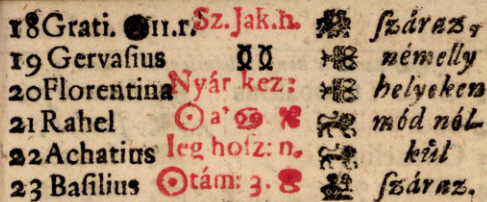 18 Grati. ●11.r. Sz. Jak. h. ſzáraz,
19 Gervaſius némelly
20 Florentina Nyár kez: helyeken
21 Rahel ☉ a' ♋ mód nél-
22 Achatius leg hoſz: n. kűl
23 Baſilius ☉ tám: 3. ſzáraz.